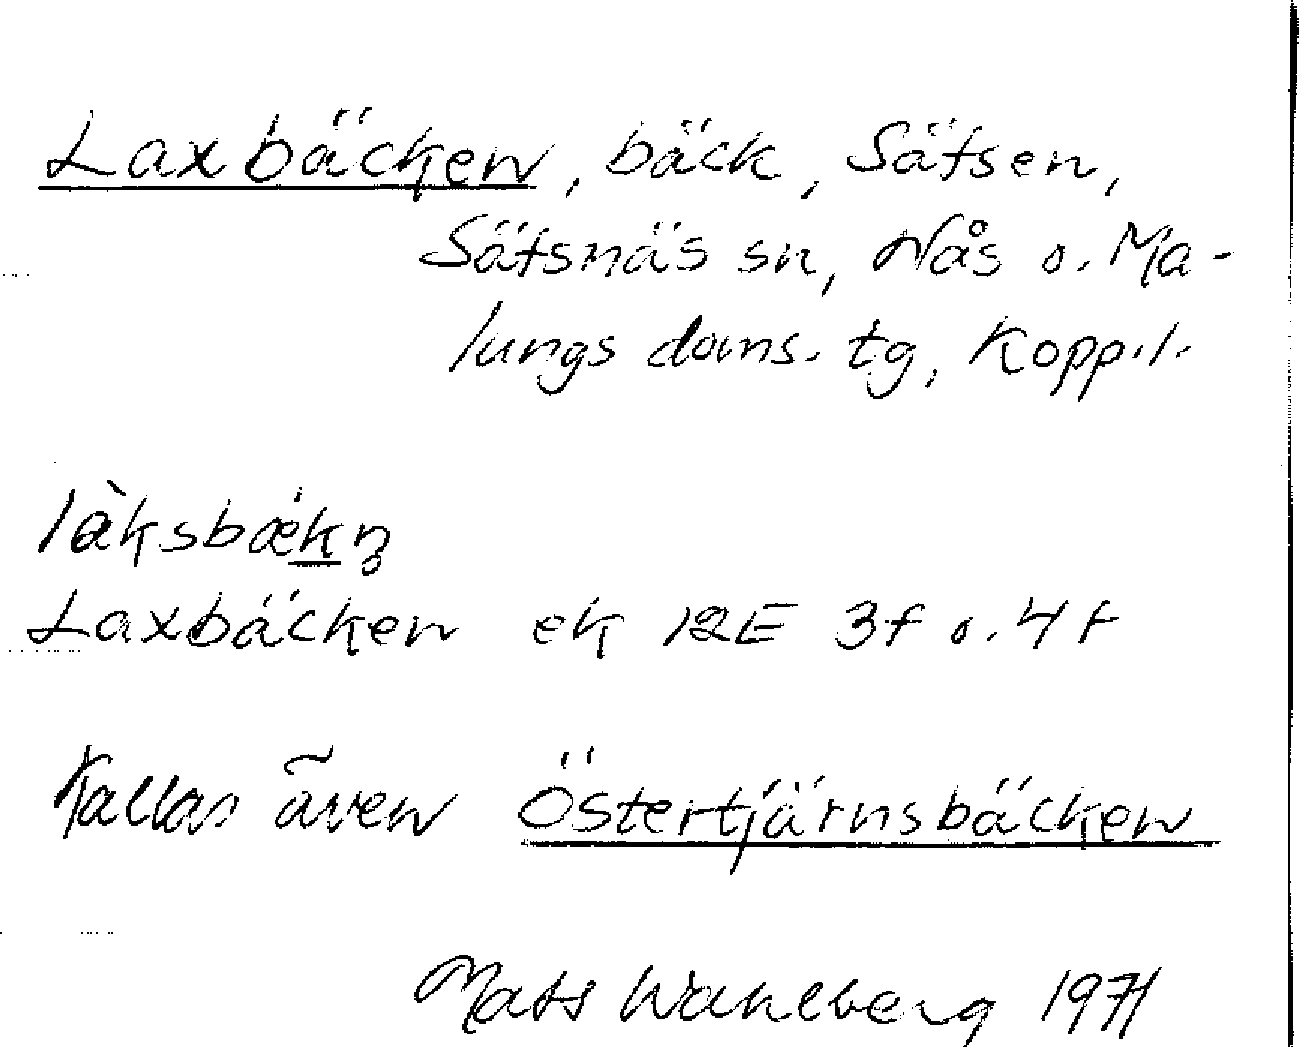 Laxbäcken, bäck, Sätsen,
Sätsnäs sn, Nås o. Ma-
lungs doms. tg, Kopp.l.
làksbækn̥
Laxbäcken ek 12E 3f o. 4f
Kallas även Östertjärnsbäcken
Mats Wahlberg 1971